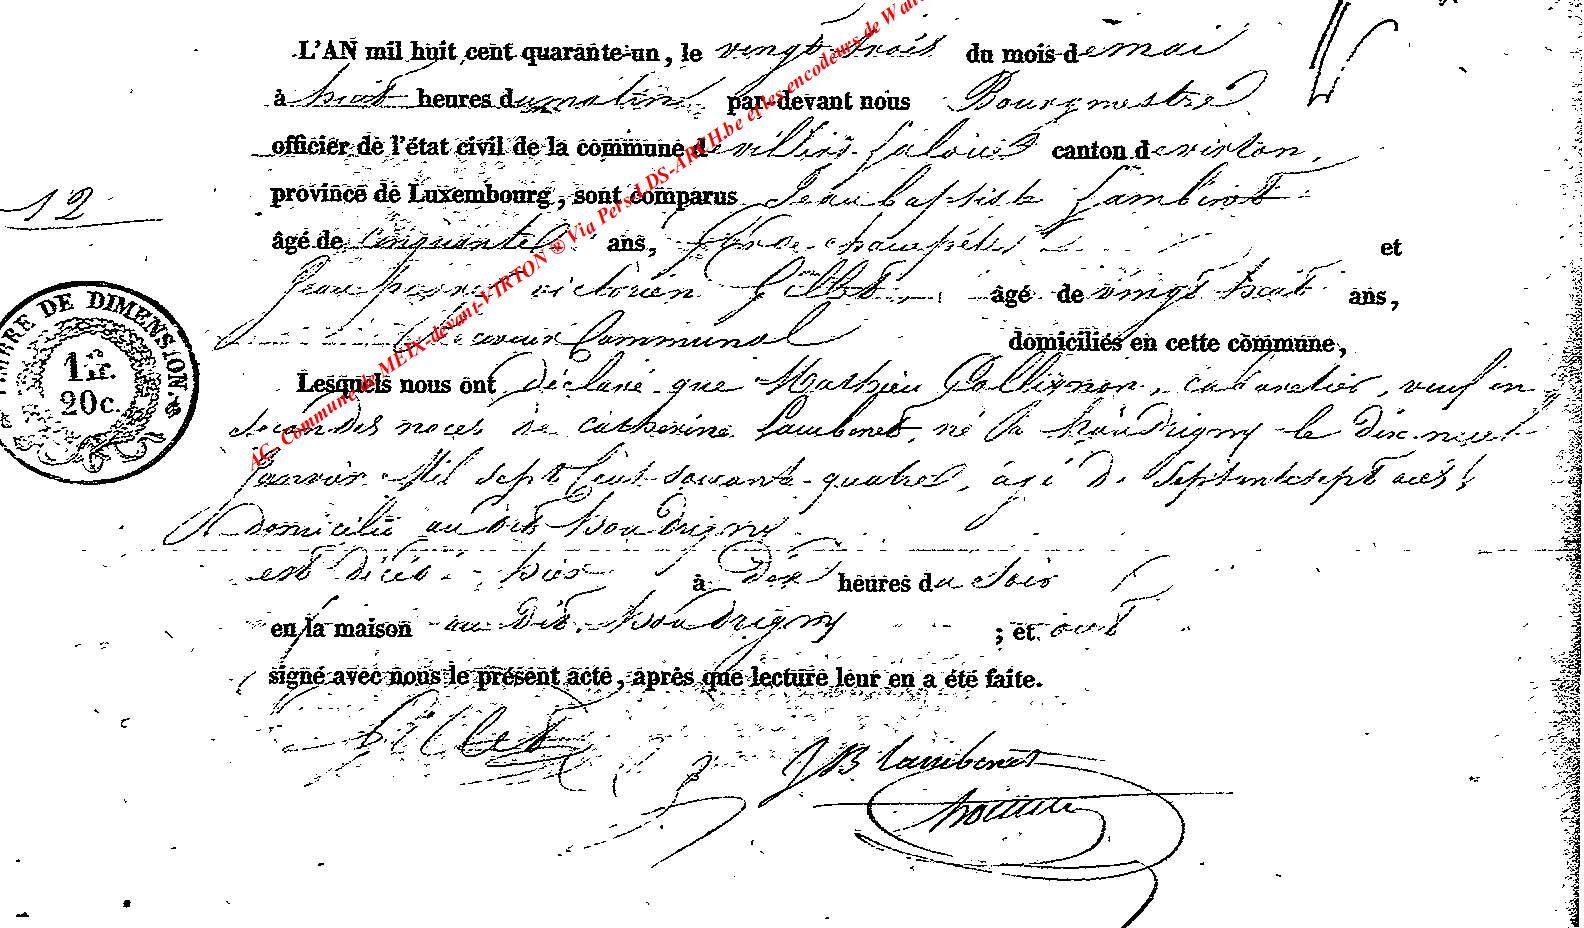 L'AN mil huit cent quarante-un, le vingt trois du mois de mai
à huit heures du matin par-devant nous Bourgmestre
officier de l'état civil de la commune de villers-laloue canton de virton,
province de Luxembourg, sont comparus Jean baptiste Lambinet
12
âgé de cinquante ans, garde champêtre et
Jean pierre victorien Gillet, âgé de vingt huit ans,
Communal domiciliés en cette commune,
TIMBRE DE DIMENSION.
1 fr.
20 c.
Lesquels nous ont déclaré que Mathieu Collignon, cabaretier, veuf en
secondes noces de Catherine Lambinet, né à houdrigny le dix neuf
Janvier Mil sept Cent soixante quatre, âgé de septante sept ans,
domicilié au dit houdrigny
est décédé hier à dix heures du soir
en la maison au dit houdrigny ; et ont
signé avec nous le présent acte, après que lecture leur en a été faite.
Gillet
JB Lambinet
AC. Commune de MEIX-devant-VIRTON ® Via Pers. LDS-ARCH.be et les encodeurs de